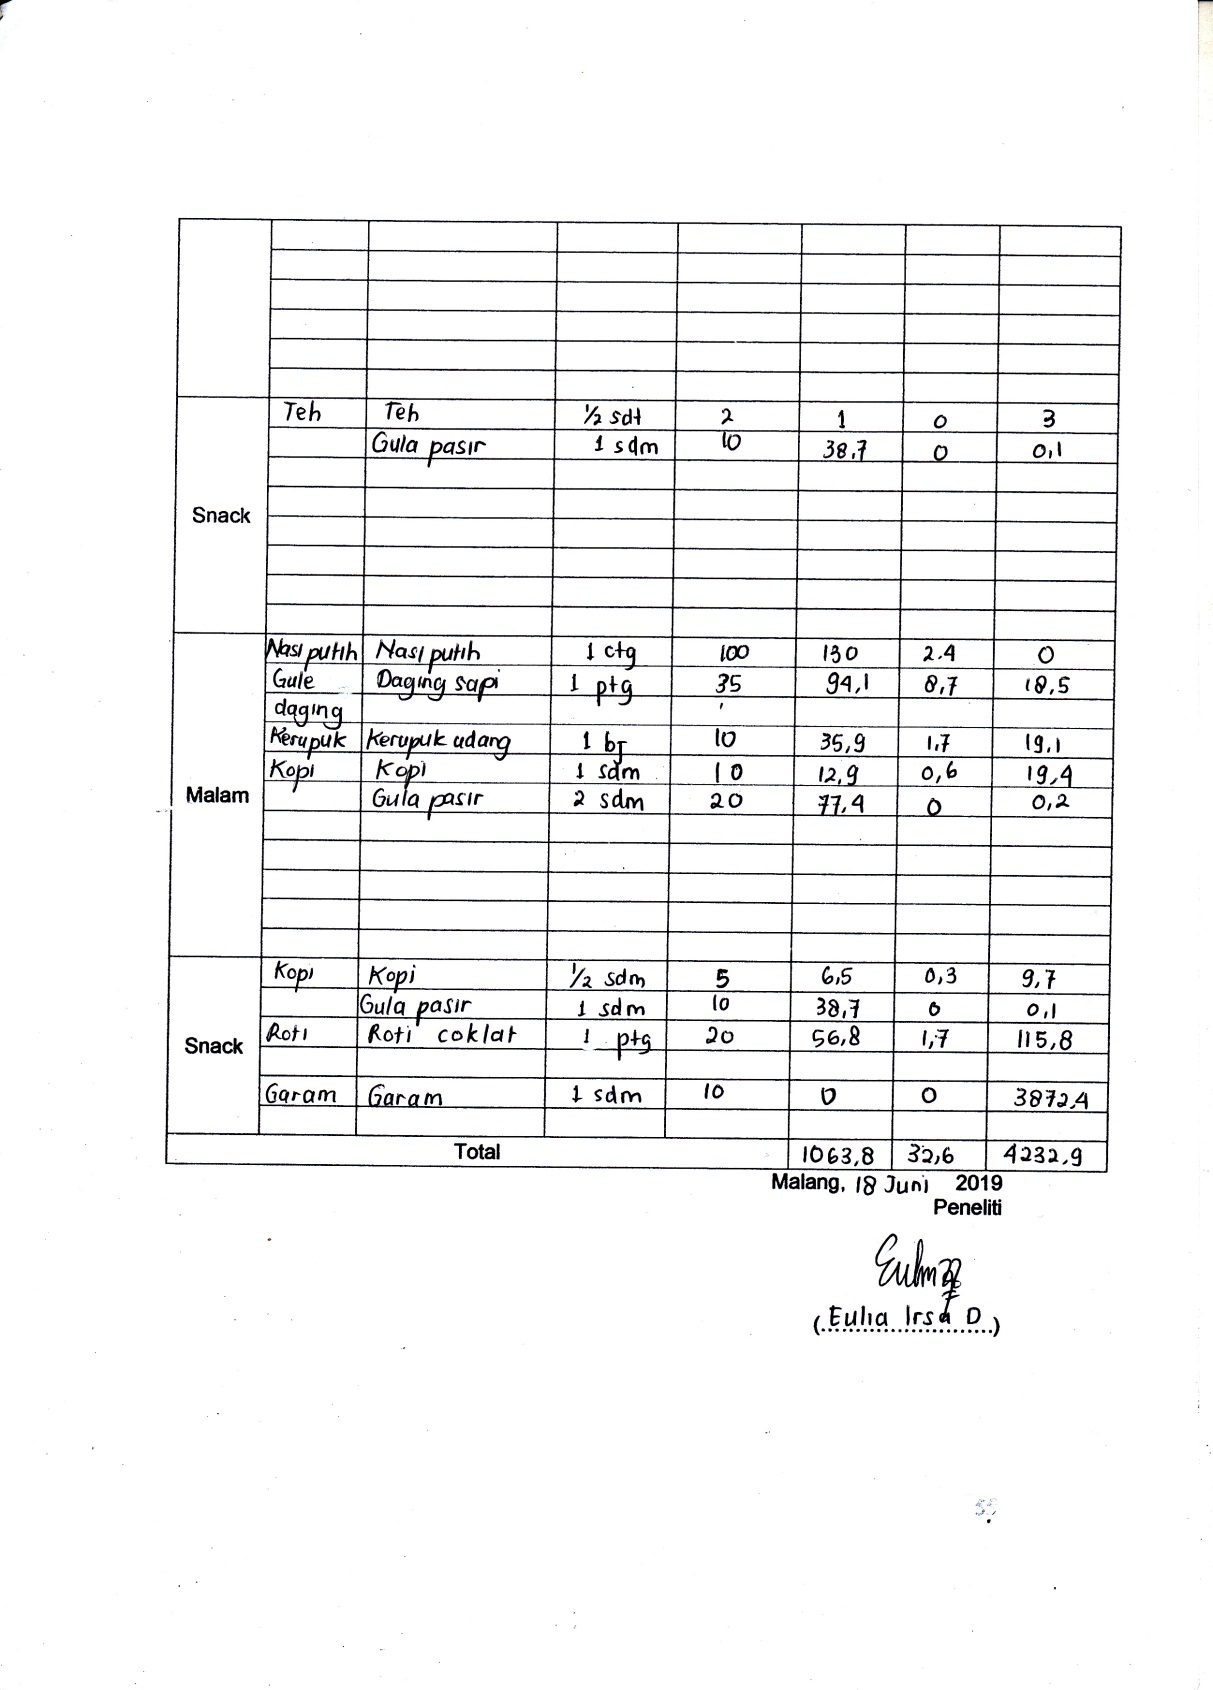 Teh Teh ½ sdt 2 1 0 3
Gula pasir 1 sdm 10 38,7 0 0,1
Snack
Nasi putih Nasi putih 1 ctg 100 130 2.4 0
Gule Daging sapi 1 ptg 35 94,1 8,7 18,5
daging
Kerupuk Kerupuk udang 1 bj 10 35,9 1,7 19,1
Kopi Kopi 1 sdm 10 12,9 0,6 19,4
Malam
Gula pasir 2 sdm 20 77,4 0 0,2
Kopi Kopi ½ sdm 5 6,5 0,3 9,7
Gula pasir 1 sdm 10 38,7 0 0,1
Roti Roti coklat 1 ptg 20 56,8 1,7 115,8
Snack
Garam Garam 1 sdm 10 0 0 3872,4
Total 1063,8 32,6 4232,9
Malang, 18 Juni 2019
Peneliti
(Eulia Irsa D)